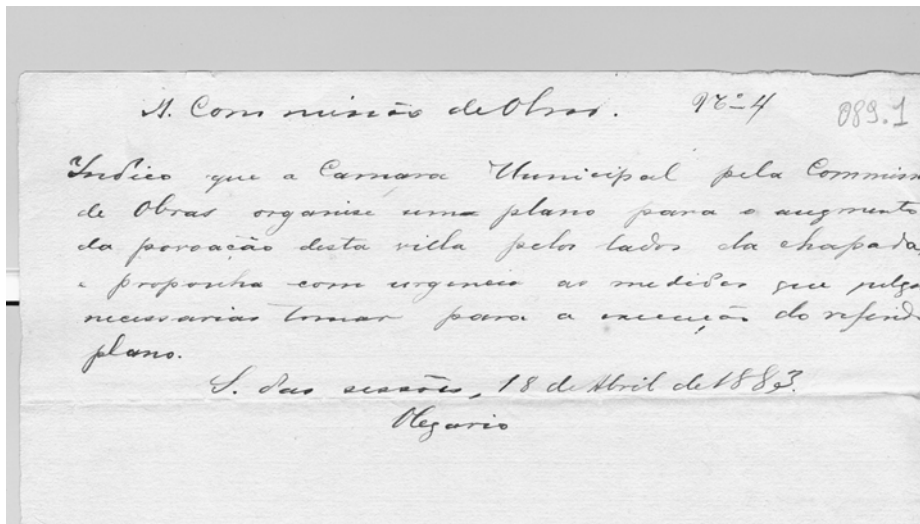 A Commissão de Obras. Nº 4
089.1
Indico que a Camara Municipal pela Commissã
de Obras organise um plano para o augmento
da povoação desta villa pelos lados da chapada,
e proponha com urgencia as medidas que julga
necessarias tomar para a execução do referido
plano.
S. das sessões, 18 de Abril de 1883.
Olegario